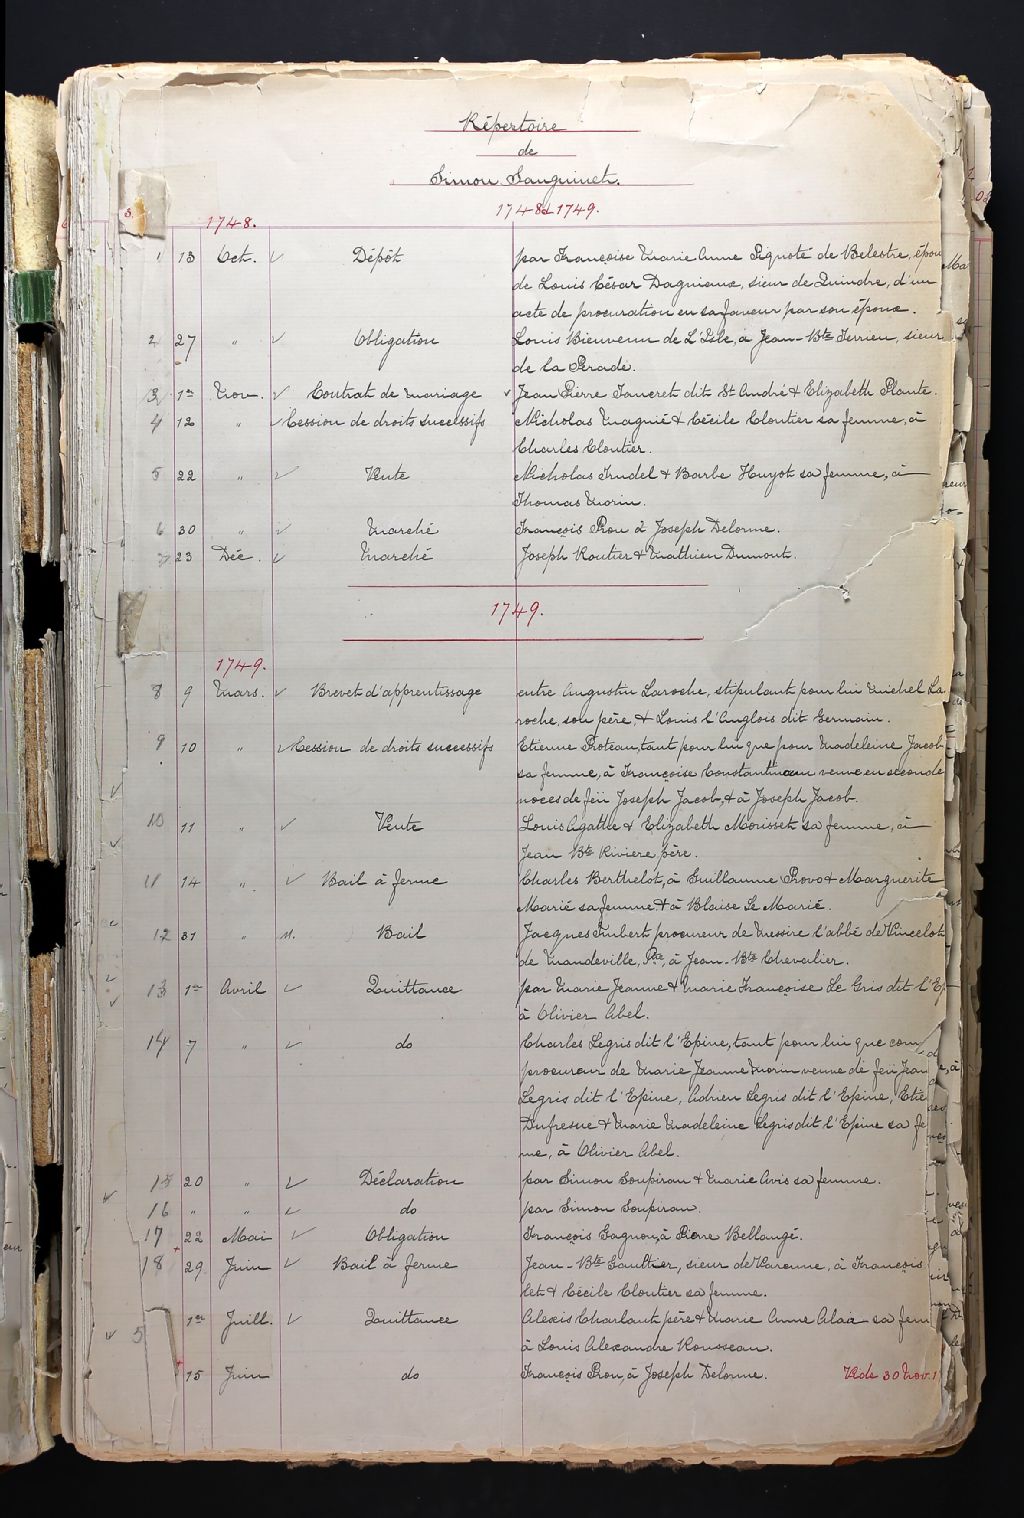 Répertoire
de
Simon Sanguinet.
1748 & 1749.
3.
1748.
1 13 Oct. Dépôt par Françoise Marie Anne Pignoté de Belestre, épou
de Louis César Dagnieaux, sieur de Quindre, d'un
acte de procuration en sa faveur par son époux.
2 27 " Obligation Louis Bienvenu de L'Isle, à Jean-Bte Terrien, sieur
de la Pérade.
3 1er Nov. Contrat de Mariage Jean Pierre Tancret dit St André & Elizabeth Plante.
4 12 " Cession de droits successifs Nicholas Magnié & Cécile Cloutier sa femme, à
Charles Cloutier.
5 22 " Vente Nicholas Trudel & Barbe Huyot sa femme, à
Thomas Morin.
6 30 " Marché François Prou à Joseph Delorme.
7 23 Déc. Marché Joseph Routier & Mathieu Dumont.
1749.
1749.
8 9 Mars. Brevet d'apprentissage entre Augustin Laroche, stipulant pour lui Michel La
roche, son père, & Louis l'Anglois dit Germain.
9 10 " Cession de droits successifs Etienne Proteau, tant pour lui que pour Madeleine Jacob
sa femme, à Françoise Constantineau veuve en seconde
noces de feü Joseph Jacob, & à Joseph Jacob.
10 11 " Vente Louis Agathe & Elizabeth Morisset sa femme, à
Jean Bte Riviere père.
11 14 " Bail à ferme Charles Berthelot, à Guillaume Provo & Marguerite
Marié sa femme & à Blaise Le Marié.
12 31 " Bail Jacques Imbert procureur de Messire l'abbé de Vincelot
de Mandeville, Ptre, à Jean-Bte Chevalier.
13 1er Avril Quittance par Marie Jeanne & Marie Françoise Le Gris dit l'Ep
à Olivier Abel.
14 7 " do Charles Legris dit l'Epine, tant pour lui que com
procureur de Marie Jeanne Morin veuve de feü Jean
Legris dit l'Epine, Adrien Legris dit l'Epine, Etie
Dufresne & Marie Madeleine Legris dit l'Epine sa fe
me, à Olivier Abel.
15 20 " Déclaration par Simon Soupiran & Marie Avis sa femme.
16 " " do par Simon Soupiran.
17 22 Mai Obligation François Gagnon, à Pierre Bellangé.
18 29 Juin Bail à ferme Jean-Bte Gaultier, sieur de Varenne, à François
let & Cécile Cloutier sa femme.
5 1er Juill. Quittance Alexis Charlant père & Marie Anne Alaa sa fem
à Louis Alexandre Rousseau.
15 Juin do François Prou, à Joseph Delorme. Vide 30 Nov. 1